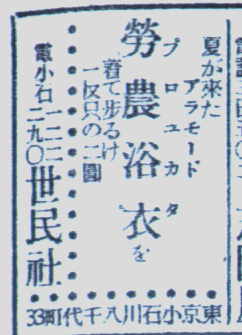 夏が來た
アラモード
プロユカタ
勞農浴衣を
着て歩るけ
一反只の二圓
電小石
一二二
二九〇
世民社
東京小石川八千代町33